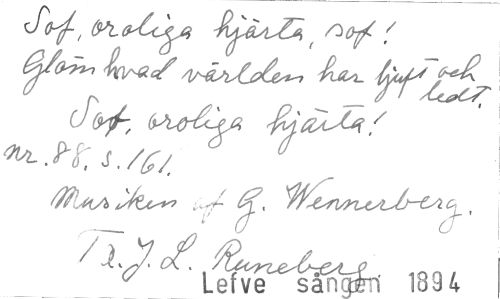 Sof, oroliga hjärta, sof!
Glöm hvad världen har ljuft och ledt.
Sof, oroliga hjärta!
nr. 88. s. 161.
Musiken af G. Wennerberg.
Tx. J. L. Runeberg.
Lefve sången 1894